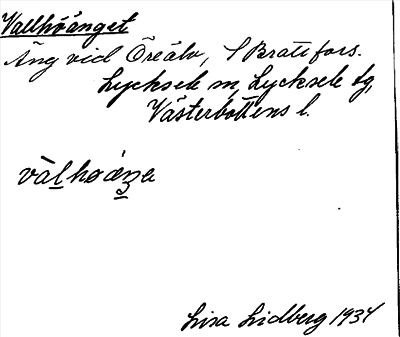 Vallhöänget
Äng vid Öreälv, S Brattfors.
Lycksele sn, Lycksele lg,
Västerbottens l.
vàlhøæŋe
Lisa Lidberg 1934